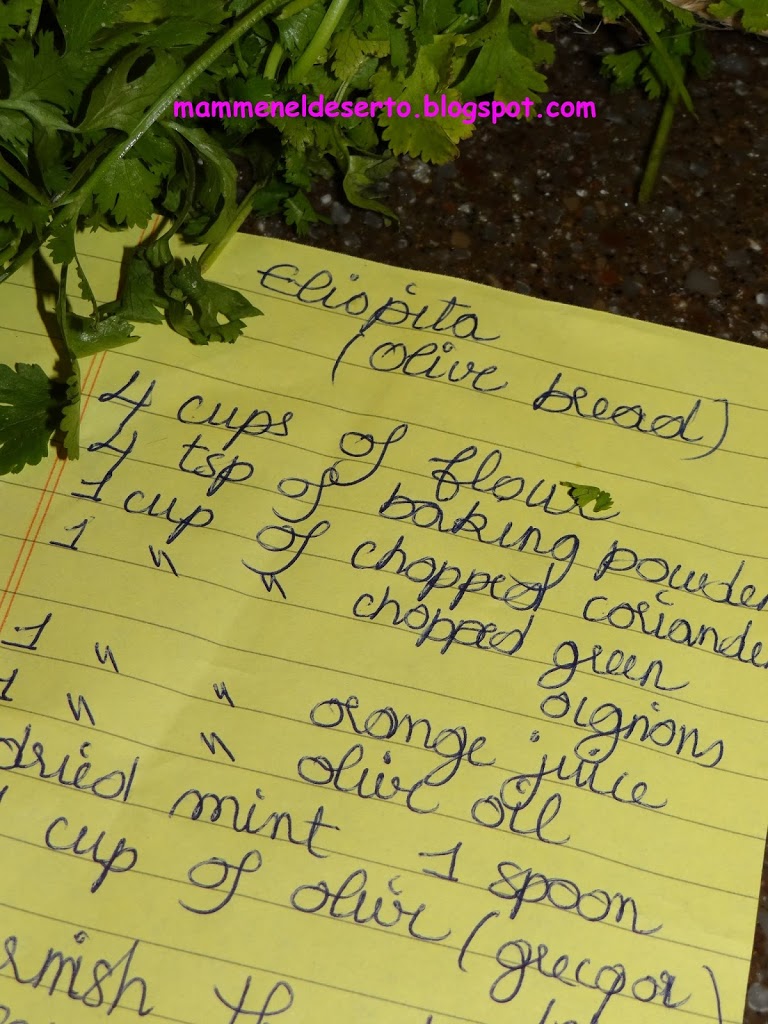 mammeneldeserto.blogspot.com
Eliopita
(olive bread)
4 cups of flour
4 tsp of baking powder
1 cup of chopped coriander
1 " " chopped green
oignons
1 " " orange juice
1 " " olive oil
dried mint 1 spoon
1 cup of olive (grecqor)